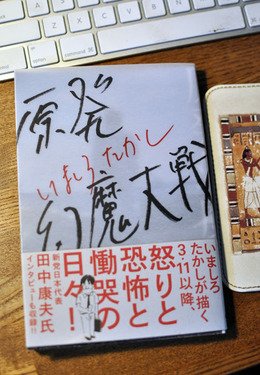 原発
いましろたかし
幻魔大戦
いましろ
たかしが描く
3・11以降、
怒りと
恐怖と
慟哭の
日々!
新党日本代表
田中康夫氏
インタビューも収録!!